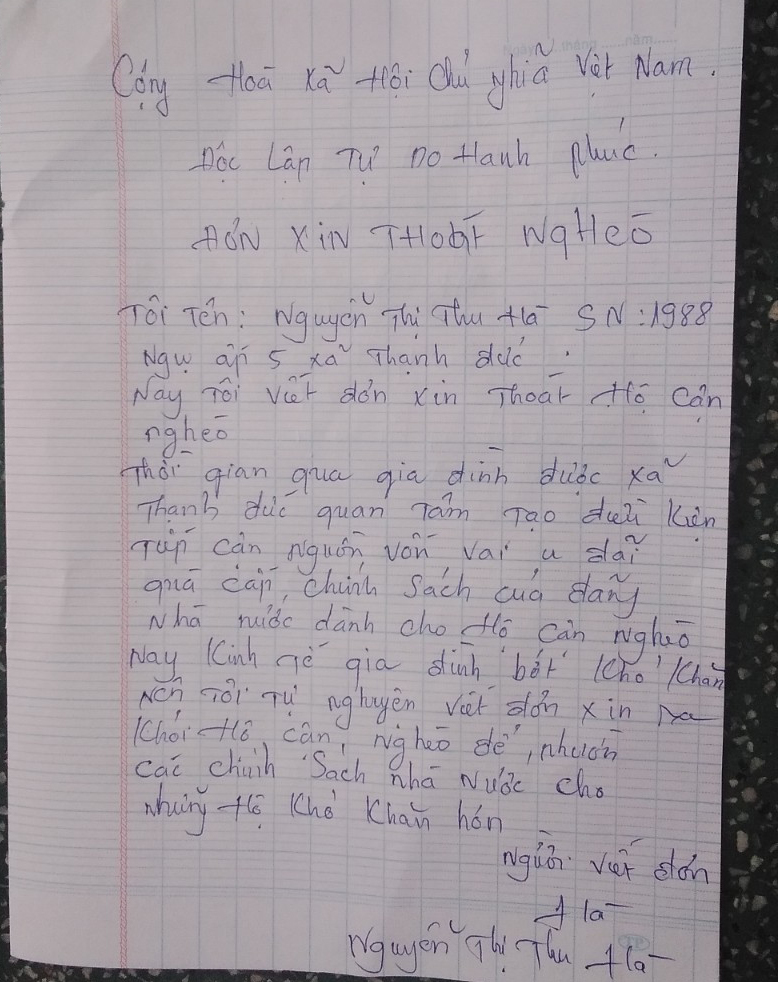 Cộng Hoà Xã Hội Chủ Nghĩa Việt Nam.
Độc Lập Tự Do Hạnh phúc.
ĐƠN XIN THOÁT NGHÈO
Tôi Tên: Nguyễn Thị Thu Hà SN: 1988
Ngụ ấp 5 xã Thạnh đức.
Nay Tôi viết đơn xin Thoát Hộ Cận
nghèo
Thời gian qua gia đình được xã
Thạnh đức quan Tâm Tạo điều Kiện
Tiếp cận Nguồn vốn vai u đãi
quá cấp, chính Sách của đảng
Nhà nước dành cho Hộ cận Nghèo
Nay Kinh Tế gia đình bớt Khó Khăn
Nên Tôi Tự nghuyện viết đơn xin Ra
Khỏi Hộ cận, nghèo để, nhườn
các chính Sách nhà Nước cho
những Hộ Khó Khăn hơn
Người viết đơn
Hà
Nguyễn Thị Thu Hà